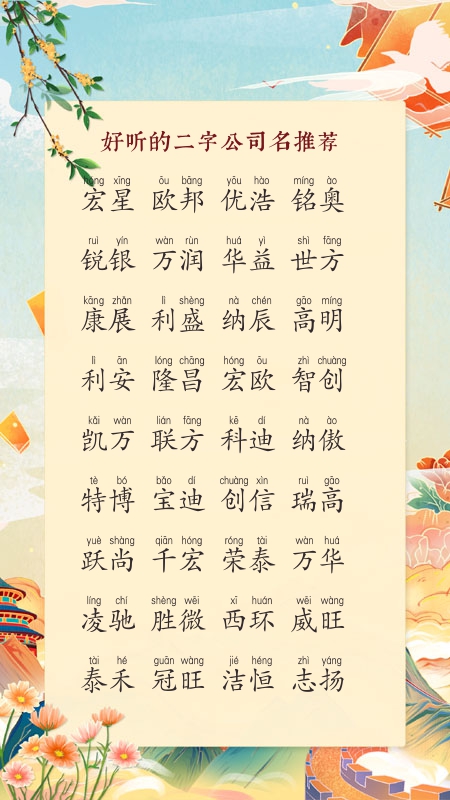 好听的二字公司名推荐
hóng xīng ōu bāng yōu hào míng ào
宏星 欧邦 优浩 铭奥
ruì yín wàn rùn huá yì shì fāng
锐银 万润 华益 世方
kāng zhǎn lì shèng nà chén gāo míng
康展 利盛 纳辰 高明
lì ān lóng chāng hóng ōu zhì chuàng
利安 隆昌 宏欧 智创
kǎi wàn lián fāng kē dí nà ào
凯万 联方 科迪 纳傲
tè bó bǎo dí chuàng xìn ruì gāo
特博 宝迪 创信 瑞高
yuè shàng qiān hóng róng tài wàn huá
跃尚 千宏 荣泰 万华
líng chí shèng wēi xī huán wēi wàng
凌驰 胜微 西环 威旺
tài hé guān wàng jié héng zhì yáng
泰禾 冠旺 洁恒 志扬